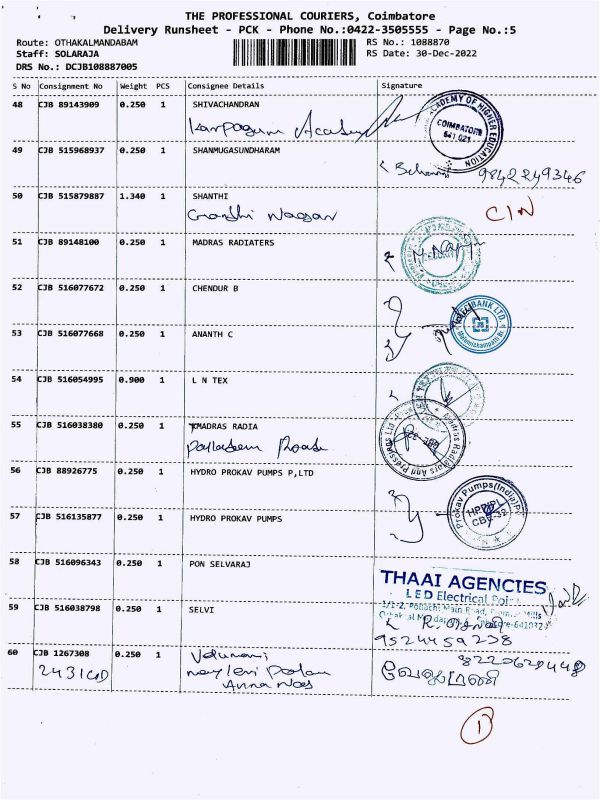 THE PROFESSIONAL COURIERS, Coimbatore
Delivery Runsheet - PCK - Phone No.:0422-3505555 - Page No.:5
Route: OTHAKALMANDABAM RS No.: 1088870
Staff: SOLARAJA RS Date: 30-Dec-2022
DRS No.: DCJB108887005
S No Consignment No Weight PCS Consignee Details Signature
48 CJB 89143909 0.250 1 SHIVACHANDRAN
Karpagam Academy
ACADEMY OF HIGHER EDUCATION
COIMBATORE
641 021
49 CJB 515968937 0.250 1 SHANMUGASUNDHARAM
9842249346
50 CJB 515879887 1.340 1 SHANTHI
Gandhi Nagar
CIN
51 CJB 89148100 0.250 1 MADRAS RADIATERS
52 CJB 516077672 0.250 1 CHENDUR B
BANK LTD.
53 CJB 516077668 0.250 1 ANANTH C
54 CJB 516054995 0.900 1 L N TEX
55 CJB 516038380 0.250 1 MADRAS RADIA
Palladam Road
Madras Radiators And Pressings Ltd
56 CJB 88926775 0.250 1 HYDRO PROKAV PUMPS P,LTD
Prokav Pumps(India)P
57 CJB 516135877 0.250 1 HYDRO PROKAV PUMPS
58 CJB 516096343 0.250 1 PON SELVARAJ
THAAI AGENCIES
LED Electrical Point
1/1-2, Pollachi Main Road, Mills
59 CJB 516038798 0.250 1 SELVI
9524459228
60 CJB 1267308 0.250 1 Velumani
8220620448
2431
Anna Nagar
வேலுமணி
1